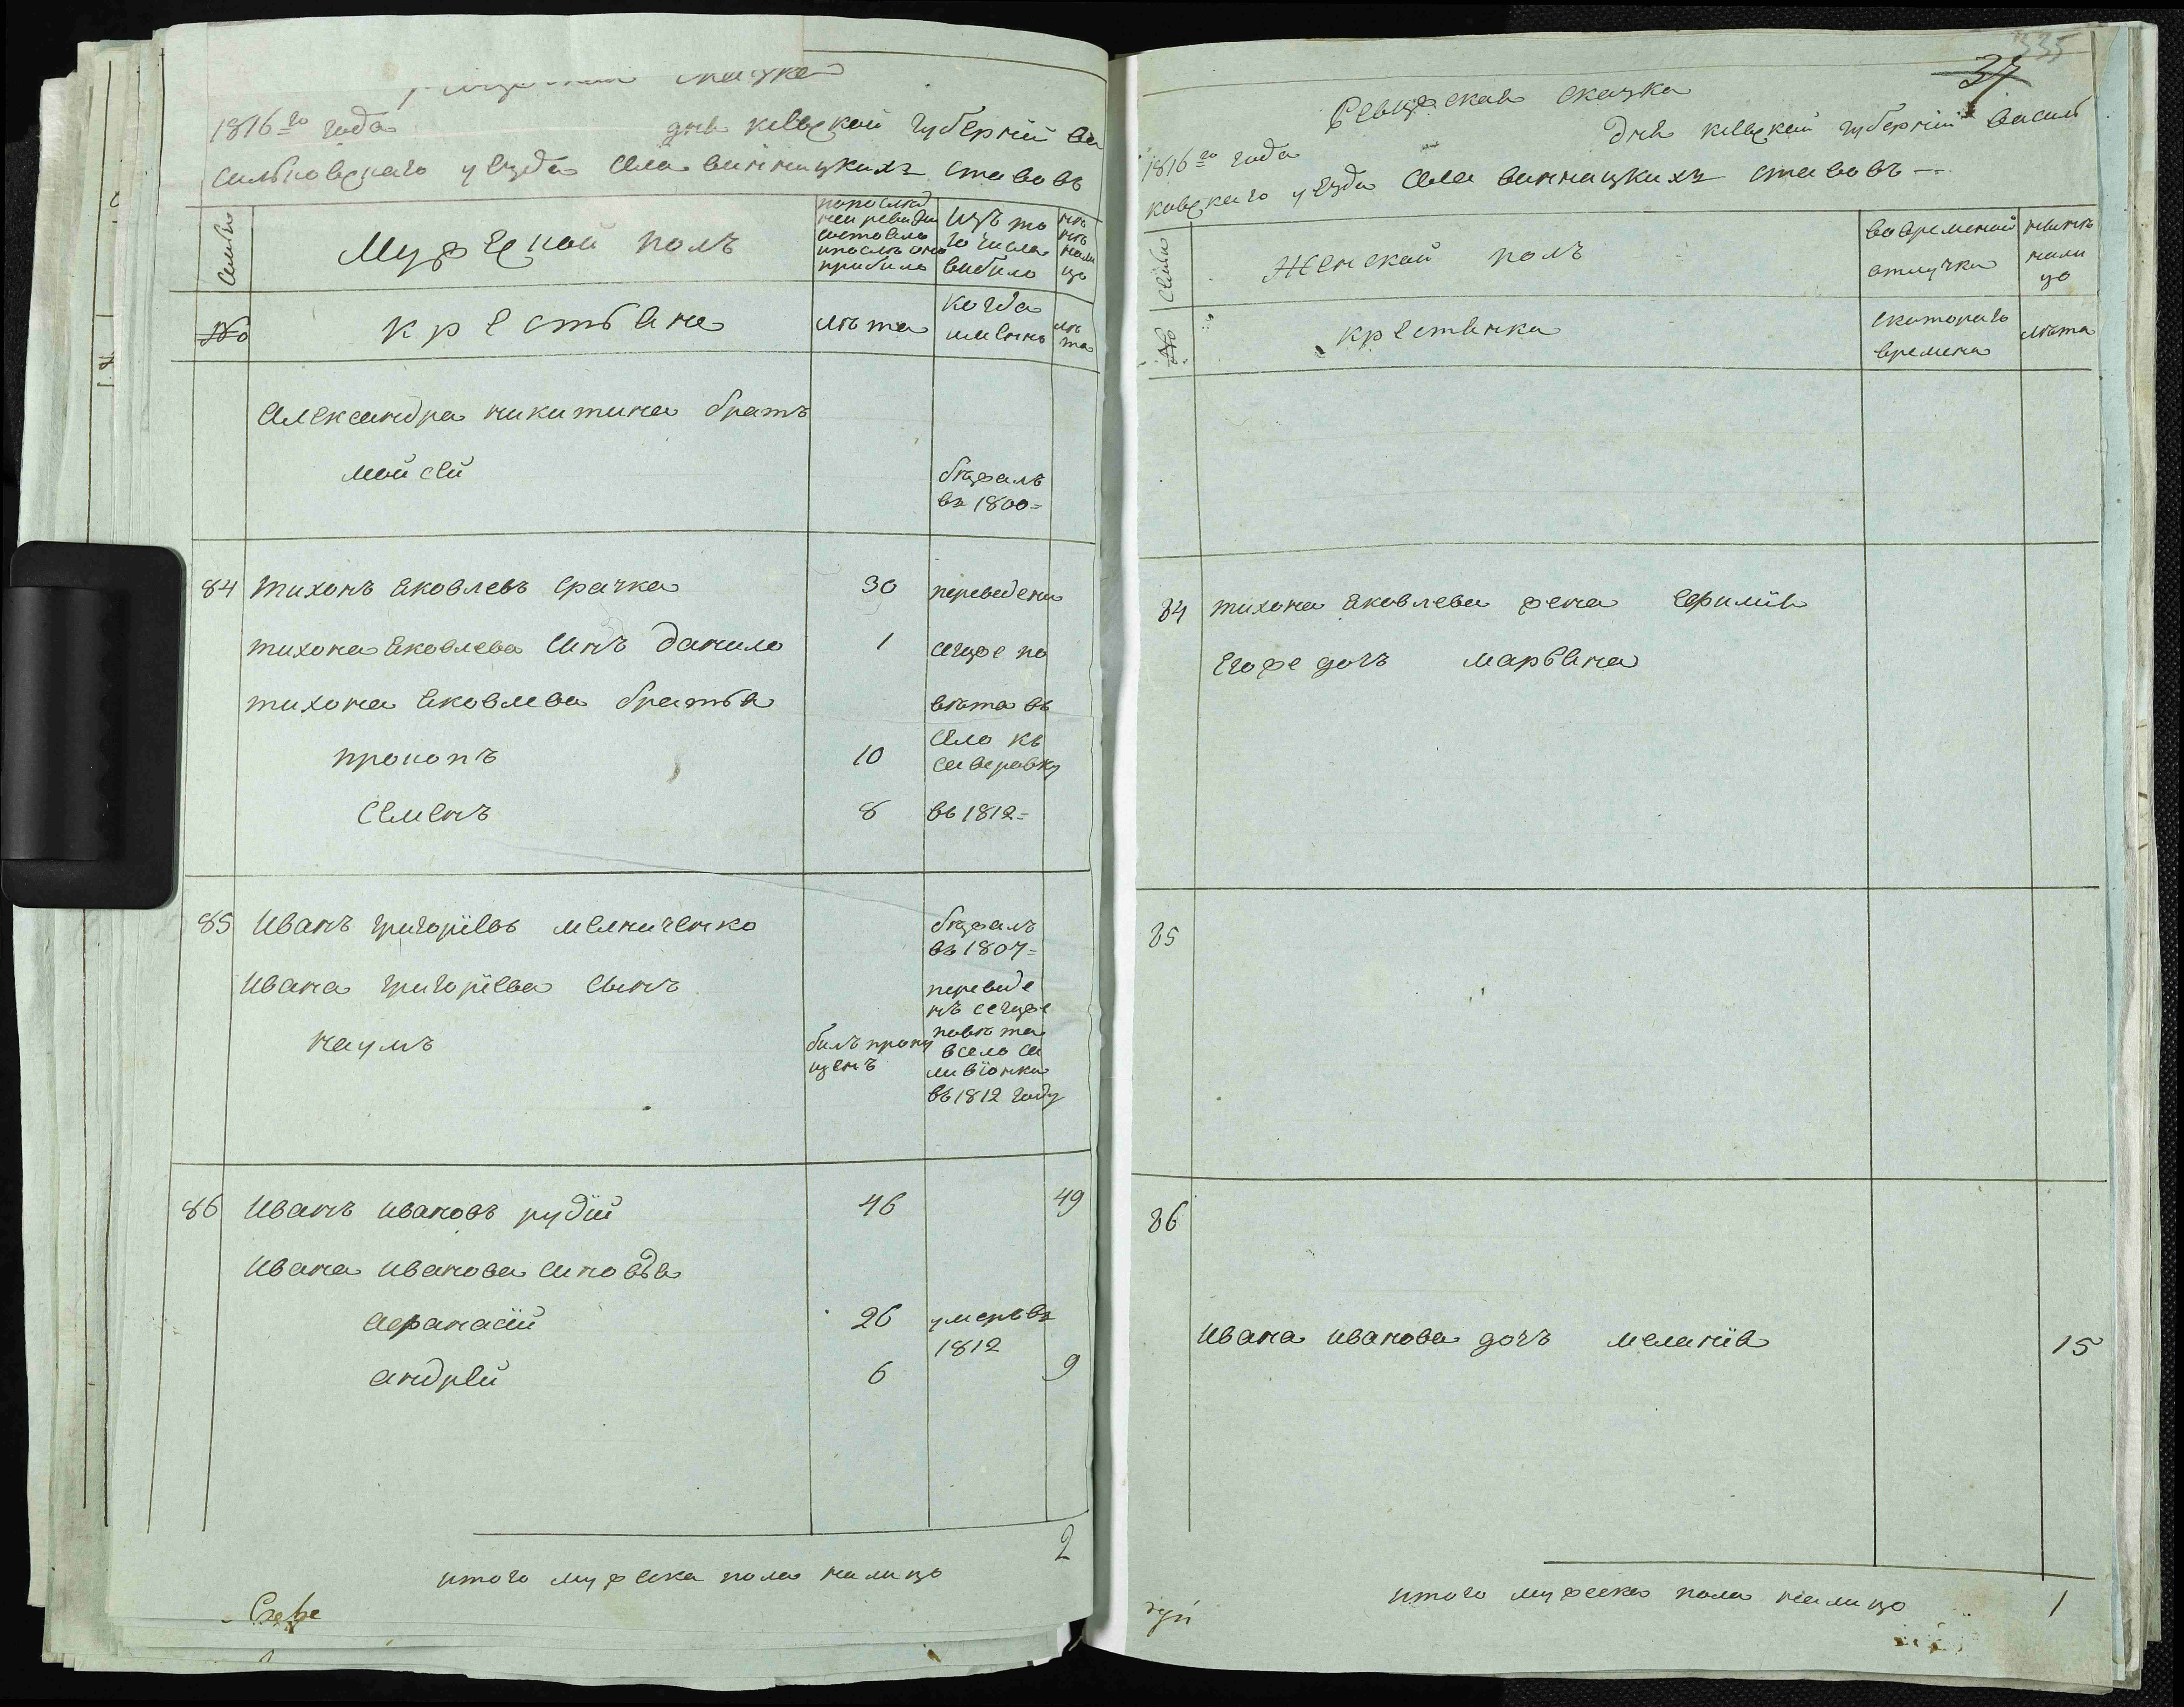 сказка
1816=го года дня кіевской губерніи ва
сильковскаго уезда села винницкихъ ставовъ
Семьи
Мужеской полъ
по послед
ней ревизіи
состояло
и после оной
прибыло
изъ то
го числа
выбыло
ныне
нали
цо
№
крестьяне
лѣта
когда
именно
лѣ
та
Александра никитина братъ
мойсей
бѣжалъ
въ 1800=
84 тихонъ яковлевъ срачка 30 переведени
тихона яковлева синъ данило 1 сегоже по
тихона яковлева братья вѣта въ
прокопъ 10 село кс
саверовку
семенъ 8 въ 1812=
85 иванъ григоріевъ мелниченко бѣжалъ
въ 1807=
ивана григоріева сынъ переведе
нъ сегоже
наумъ билъ пропу повѣта
щенъ всело са
ливіонки
въ 1812 году
86 иванъ ивановъ рудій 46 49
ивана иванова синовья
афанасій 26 умеръ въ
1812
андрей 6 9
2
итого мужеска пола налицо
335
37
Ревизская сказка
1816=го года дня кіевской губерніи василь
ковскаго уезда села винницкихъ ставовъ
Семьи
Женской полъ
во временной
отлучки
ныне
нали
цо
№
крестянки
скотораго
времени
лѣта
84 тихона яковлева жена Ефимія
Егоже дочъ маръяна
85
86
ивана иванова дочъ меланія 15
итого мужеска пола налицо 1